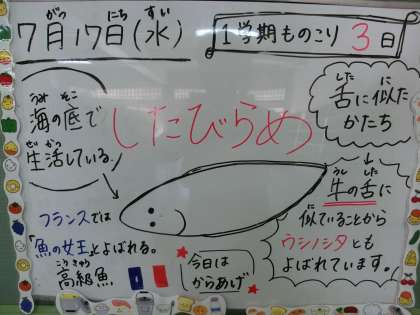 7月17日(水)
がつ にち すい
1学期ものこり 3日
うみ そこ
海の底で
せいかつ
生活している!
したびらめ
した に
舌に似た
かたち
うし した
牛の舌に
に
似ていることから
ウシノシタとも
よばれています。
フランスでは
「魚の女王」とよばれる。
こうきゅう
高級魚
今日は
からあげ